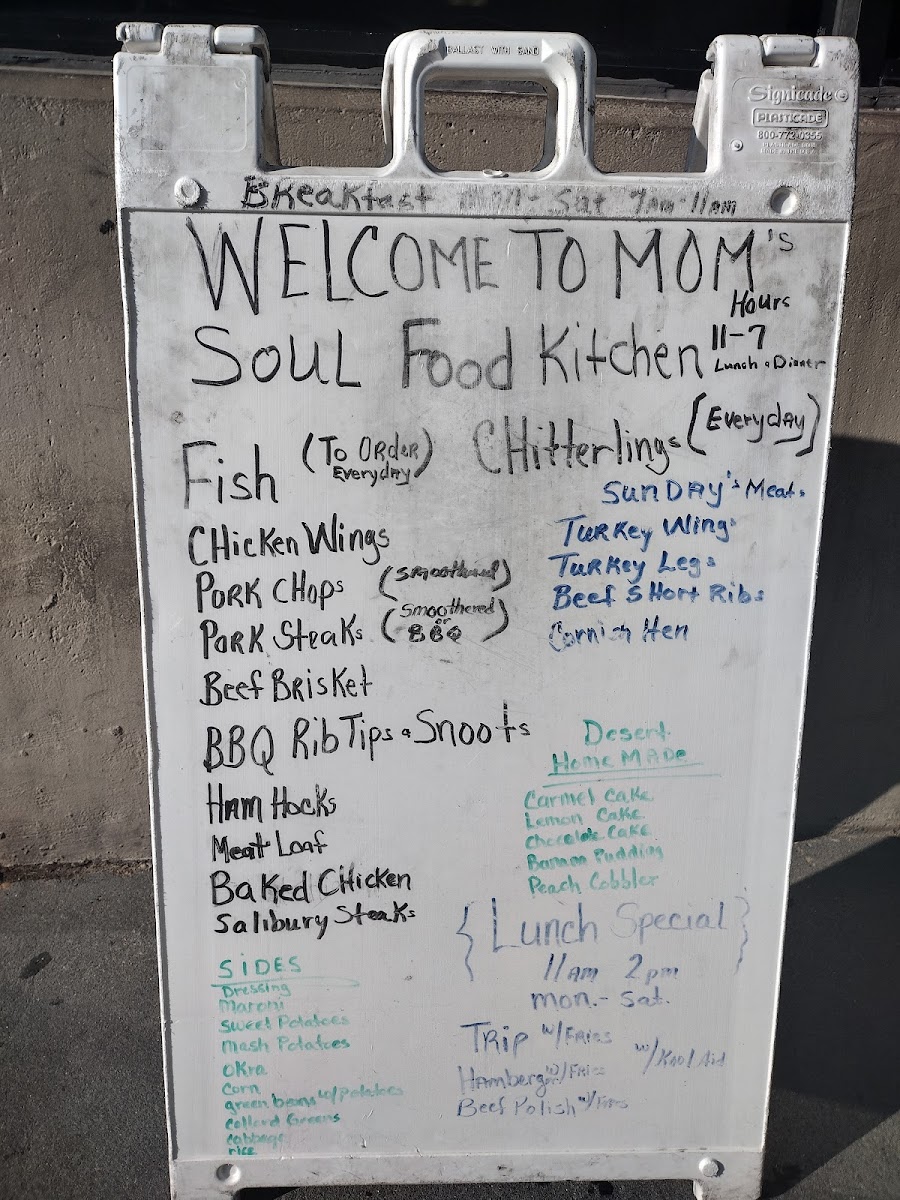 BALLAST WITH SAND
Signicade
PLASTICADE
800-772-0355
BReakfast Mon - Sat 7am - 11am
WELCOME TO MOM's
Hours
Soul Food Kitchen 11-7
Lunch & Dinner
Fish (To ORdeR Everyday)
CHitterlings (Everyday)
CHicken Wings
PoRK CHops (Smoothered)
PoRK Steaks (Smoothered or BBQ)
Beef BRisket
BBQ Rib Tips & Snoots
HAm Hocks
Meat Loaf
Baked CHicken
Salibury Steaks
SunDAY's Meats
TuRKey Wings
TuRKey Legs
Beef SHort Ribs
Cornish Hen
Desert
Home MADe
Carmel Cake
Lemon Cake
Chocolate Cake
Banana Pudding
Peach Cobbler
{Lunch Special}
11am 2pm
mon. - Sat.
Trip w/FRies
w/Kool Aid
HAmberger w/Fries
Beef Polish w/Fries
SiDES
Dressing
Maroni
Sweet Potatoes
Mash Potatoes
OKra
Corn
green beans w/potatoes
Collard Greens
Cabbage
rice